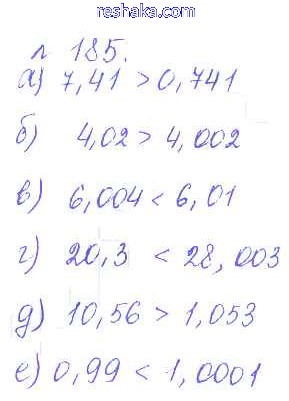 reshaka.com
л 185.
а) 7,41 > 0,741
б) 4,02 > 4,002
в) 6,004 < 6,01
г) 20,3 < 28,003
д) 10,56 > 1,053
е) 0,99 < 1,0001